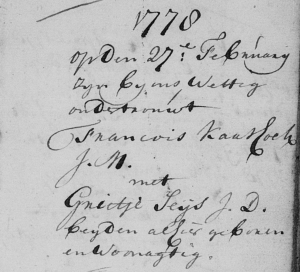 1778
op den 27e Februarij
zyn by ons Wettig
ondertrouwt
Francois
J. M.
met
Grietje Seijs J. D.
beyden alhier geboren
en Woonagtig.